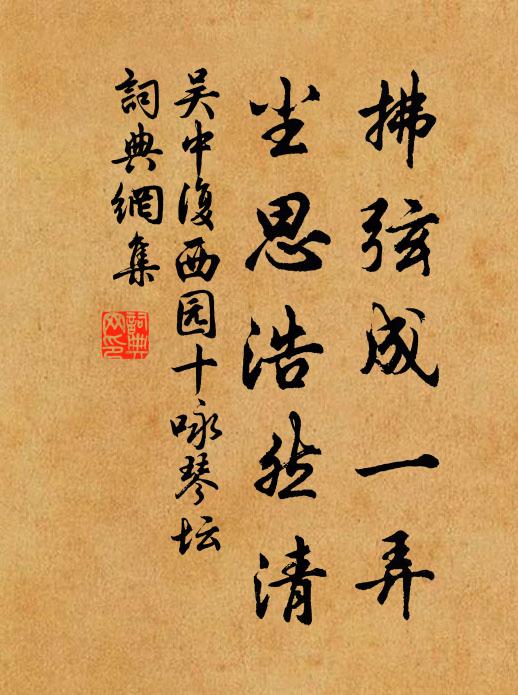 拂弦成一弄
尘思浩然清
吴中复西园十咏琴坛
詞典網集
詞典